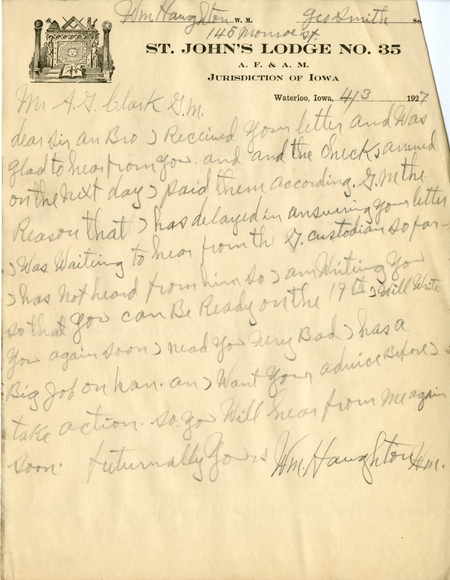 Wm Haughton W. M. Geo Smith Se
145 Monroe St
ST. JOHN'S LODGE NO. 35
A. F. & A. M.
JURISDICTION OF IOWA
Waterloo, Iowa, 4/3 1927
Mr A. G. Clark G.M.
dear Sir an Bro I Received your letter and Was
glad to hear from you. and and the checks arrived
on the Next day I paid them according. G.M the
Reason that I has delayed in answering your letter
I Was Waiting to hear from the G. custodian so far
I has Not heard from him so I am Writing you
so that you can Be Ready on the 19th I Will Write
you again soon I nead you very Bad I has a
Big Job on han. an I Want your advice Before I
take action. so you Will hear from Me again
soon. futurnally yours Wm. Haughton W.M.